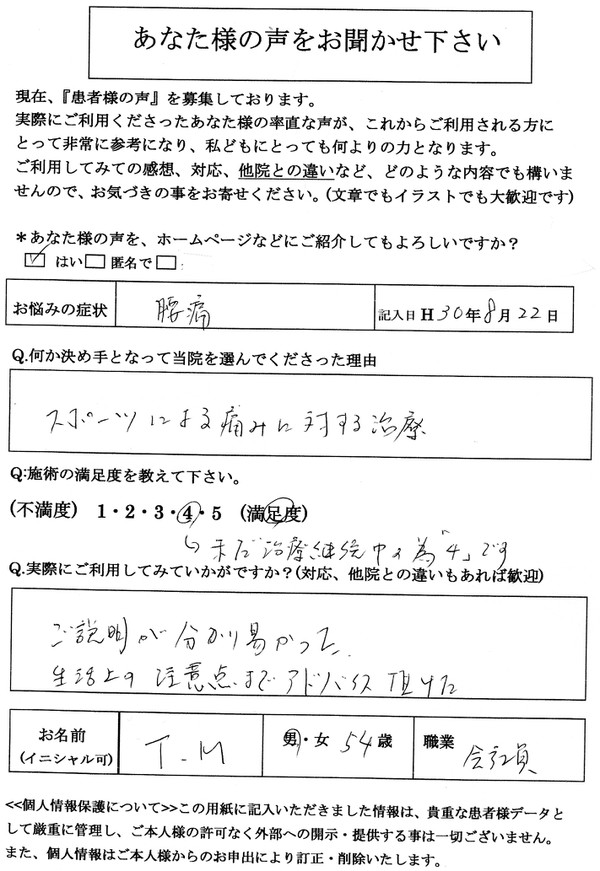 あなた様の声をお聞かせ下さい
現在、『患者様の声』を募集しております。
実際にご利用くださったあなた様の率直な声が、これからご利用される方に
とって非常に参考になり、私どもにとっても何よりの力となります。
ご利用してみての感想、対応、他院との違いなど、どのような内容でも構いま
せんので、お気づきの事をお寄せください。(文章でもイラストでも大歓迎です)
＊あなた様の声を、ホームページなどにご紹介してもよろしいですか？
☑ はい□ 匿名で□
お悩みの症状 腰痛 記入日 H 30年8月22日
Q.何か決め手となって当院を選んでくださった理由
スポーツによる痛みに対する治療
Q:施術の満足度を教えて下さい。
(不満度) 1・2・3・4・5 (満足度)
↳ 未だ治療継続中の為「4」です
Q.実際にご利用してみていかがですか？(対応、他院との違いもあれば歓迎)
ご説明が分かり易かった、
生活上の注意点までアドバイス頂けた
お名前 (イニシャル可) T.M 男・女 54歳 職業 会社員
<<個人情報保護について>>この用紙に記入いただきました情報は、貴重な患者様データと
して厳重に管理し、ご本人様の許可なく外部への開示・提供する事は一切ございません。
また、個人情報はご本人様からのお申出により訂正・削除いたします。